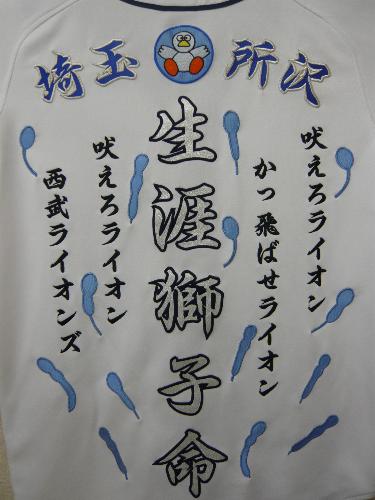 埼玉 所沢
吠えろライオン
かっ飛ばせライオン
生涯獅子命
吠えろライオン
西武ライオンズ